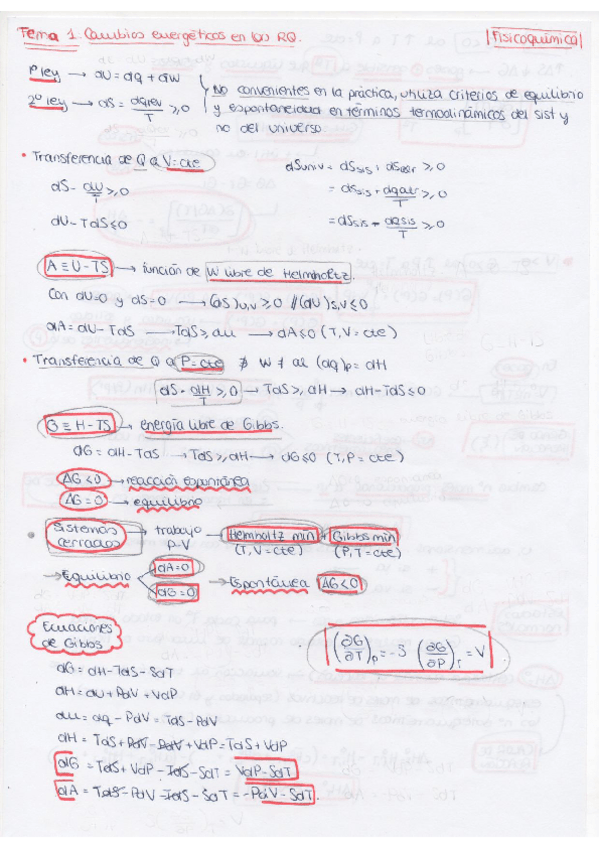 Tema 1. Cambios energéticos en las RQ.
Fisicoquímica
1º ley → dU = dq + dW
2º ley → dS = dqrev/T ≥ 0
No convenientes en la práctica, utiliza criterios de equilibrio
y espontaneidad en términos termodinámicos del sist y
no del universo
• Transferencia de Q a V = cte
dSuniv = dSsis + dSalr ≥ 0
dS - dU/T ≥ 0
= dSsis + dqalr/T ≥ 0
dU - TdS ≤ 0
= dSsis - dqsis/T ≥ 0
A ≡ U - TS → función de W libre de Helmholtz.
Con dU=0 y dS=0 → (dS)U,V ≥ 0 // (dU)S,V ≤ 0
dA = dU - TdS → TdS ≥ dU → dA ≤ 0 (T,V = cte)
• Transferencia de Q a P = cte
(dq)p = dH
dS - dH/T ≥ 0 → TdS ≥ dH → dH - TdS ≤ 0
G ≡ H - TS → energía libre de Gibbs.
dG = dH - TdS → TdS ≥ dH → dG ≤ 0 (T,P = cte)
ΔG < 0 → reacción espontánea
ΔG = 0 → equilibrio
• Sistemas cerrados → trabajo P-V → Helmholtz mín + Gibbs mín
(T,V = cte) (P,T = cte)
→ Equilibrio < dA=0 dG=0 → Espontánea ΔG < 0
Ecuaciones
de Gibbs
(∂G/∂T)p = -S (∂G/∂P)T = V
dG = dH - TdS - SdT
dH = dU + PdV + VdP
dU = dq - PdV = TdS - PdV
dH = TdS + PdV - PdV + VdP = TdS + VdP
dG = TdS + VdP - TdS - SdT = VdP - SdT
dA = TdS - PdV - TdS - SdT = -PdV - SdT.